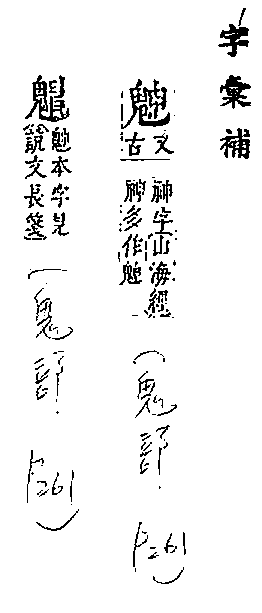 字彙補
䰠
古文
神字山海經
神多作䰠
(鬼部. P.261)
䰠本字見
說文長箋
(鬼部. P.261)